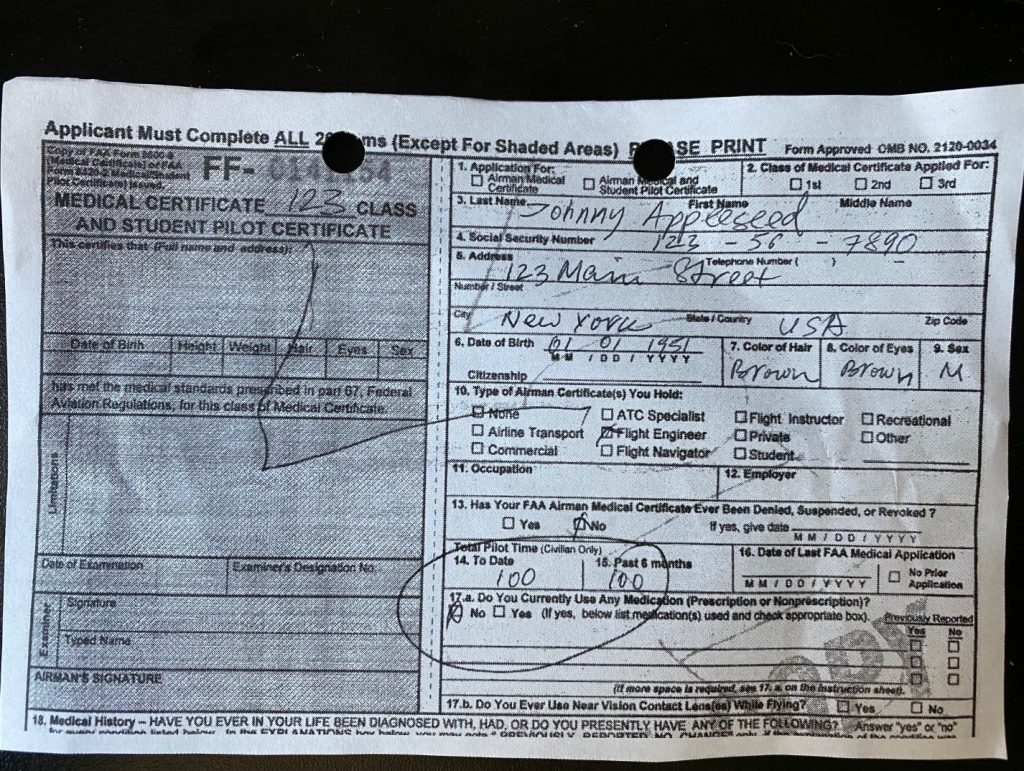 Applicant Must Complete ALL 20 ms (Except For Shaded Areas) P ASE PRINT Form Approved OMB NO. 2120-0034
Copy of FAA Form
(Medical Certificate) or FAA
Form 8420-2 Medical/Student
Pilot Certificate) Issued.
FF-
MEDICAL CERTIFICATE 123 CLASS
AND STUDENT PILOT CERTIFICATE
This certifies that (Full name and address):
Date of Birth Height Weight Hair Eyes Sex
has met the medical standards prescribed in part 67, Federal
Aviation Regulations, for this class of Medical Certificate.
Limitations
Date of Examination Examiner's Designation No.
Examiner
Signature
Typed Name
AIRMAN'S SIGNATURE
1. Application For:
Airman Medical Certificate
Airman Medical and Student Pilot Certificate
2. Class of Medical Certificate Applied For:
1st 2nd 3rd
3. Last Name First Name Middle Name
Johnny Appleseed
4. Social Security Number 123 - 56 - 7890
5. Address Telephone Number ( )
123 Main Street
Number / Street
City New York State / Country USA Zip Code
6. Date of Birth 01 01 1951
MM / DD / YYYY
Citizenship
7. Color of Hair
Brown
8. Color of Eyes
Brown
9. Sex
M
10. Type of Airman Certificate(s) You Hold:
None ATC Specialist Flight Instructor Recreational
Airline Transport Flight Engineer Private Other
Commercial Flight Navigator Student
11. Occupation 12. Employer
13. Has Your FAA Airman Medical Certificate Ever Been Denied, Suspended, or Revoked ?
Yes No If yes, give date
MM / DD / YYYY
Total Pilot Time (Civilian Only)
14. To Date
100
15. Past 6 months
100
16. Date of Last FAA Medical Application
MM / DD / YYYY No Prior Application
17.a. Do You Currently Use Any Medication (Prescription or Nonprescription)?
No Yes (If yes, below list medication(s) used and check appropriate box).
Previously Reported
Yes No
(If more space is required, see 17. a. on the instruction sheet).
17.b. Do You Ever Use Near Vision Contact Lens(es) While Flying? Yes No
18. Medical History – HAVE YOU EVER IN YOUR LIFE BEEN DIAGNOSED WITH, HAD, OR DO YOU PRESENTLY HAVE ANY OF THE FOLLOWING? Answer "yes" or "no"